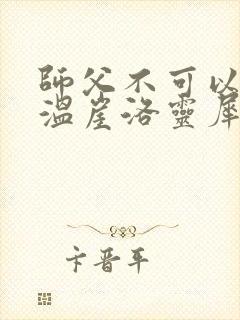 師父不可以
溫崖洛靈犀
卡晋平